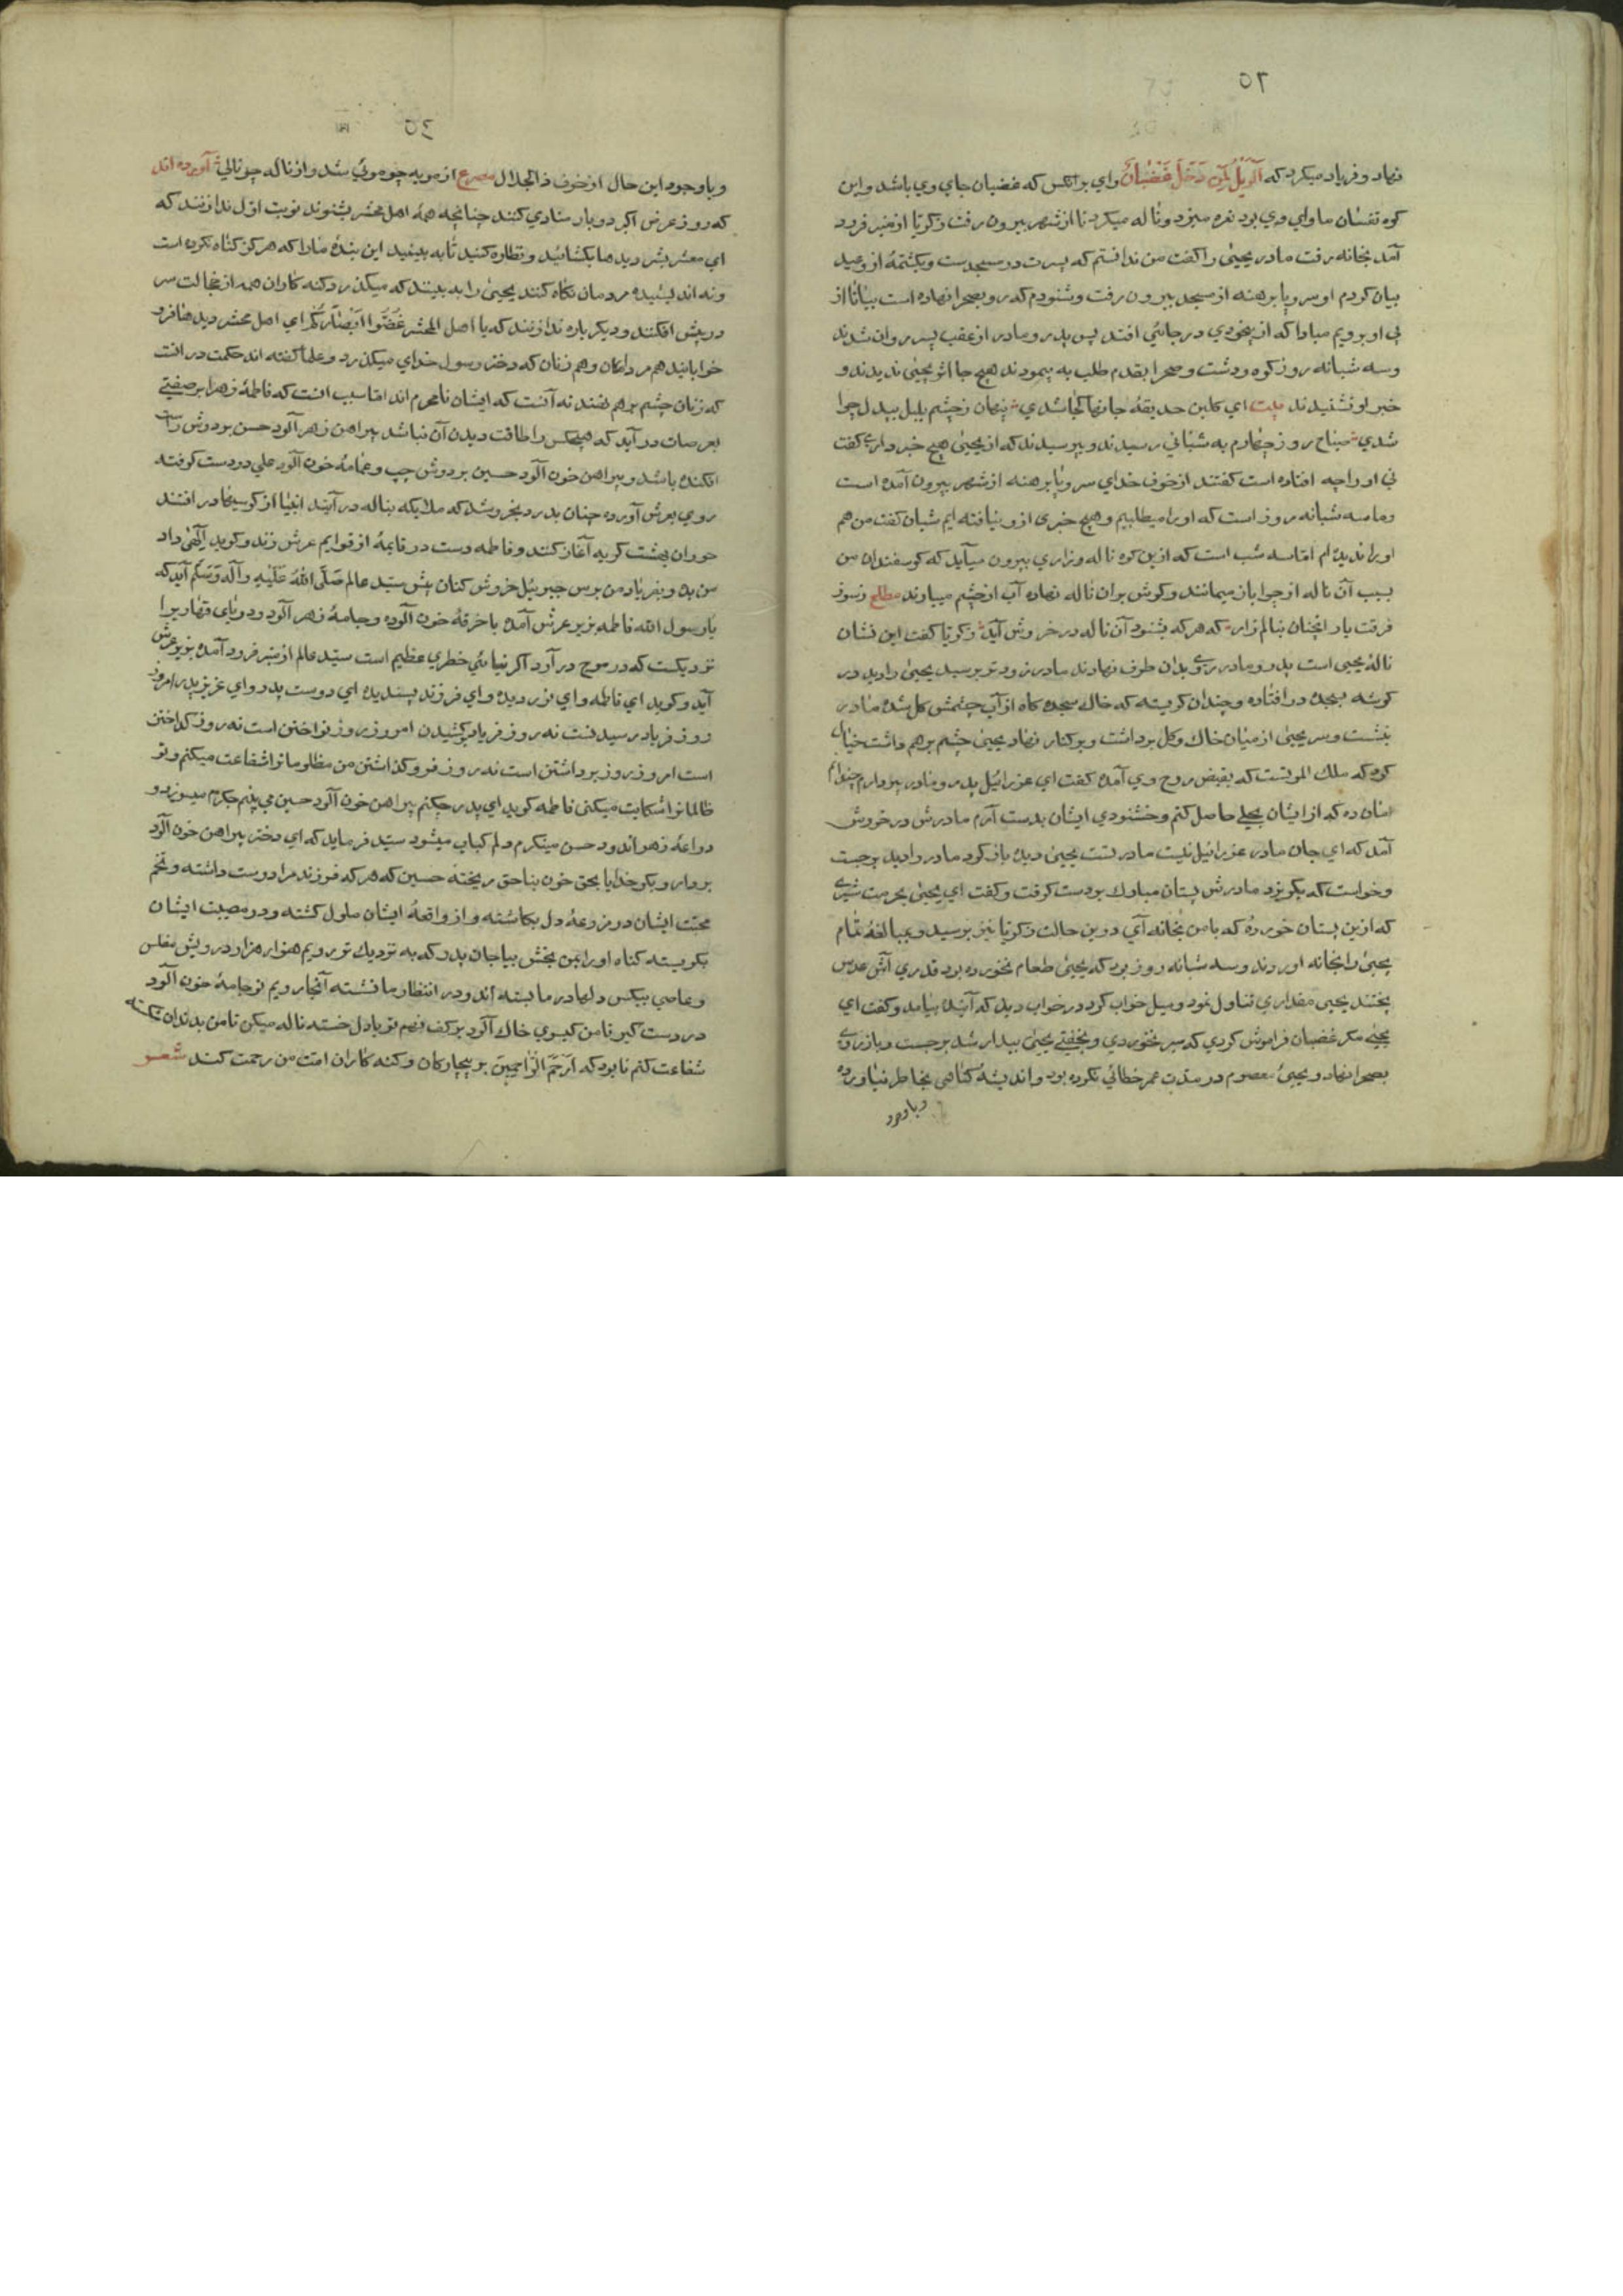 ٥٣
نهاد و فریاد میکرد که اَلْوَیْلُ لِمَنْ دَخَلَ غَضْبَانَ وای برانکس که غضبان جای وی باشد و این
کوه نفشان ماوای وی بود نعره میزد و ناله میکرد تا از شهر بیرون رفت زکریا از منبر فرود
آمد بخانه رفت مادر یحیی را کفت من ندانستم که پسرت در مسجدست و یکشمهٔ از وعید
بیان کردم او سر و پا برهنه از مسجد بیرون رفت و شنودم که رو بصحرا نهاده است بیا تا از
پی او برویم مبادا که از بیخودی در جائی افتد پس پدر و مادر از عقب پسر روان شدند
و سه شبانه روز کوه و دشت و صحرا بقدم طلب به پیمودند هیچ جا اثر یحیی ندیدند و
خبر او نشنیدند بیت ای کلبن حدیقهٔ جانها کجا شدی پنهان ز چشم بلبل بیدل چرا
شدی صباح روز چهارم به شبانی رسیدند و پرسیدند که از یحیی هیچ خبر داری کفت
نی او را چه افتاده است کفتند از خوف خدای سر و پا برهنه از شهر بیرون آمده است
و ما سه شبانه روز است که او را میطلبیم و هیچ خبری ازو نیافته ایم شبان کفت من هم
او را ندیده ام اما سه شب است که ازین کوه ناله و زاری بیرون میآید که کوسفندان من
بسبب آن ناله از چرا باز میمانند و کوش بران ناله نهاده آب از چشم میبارند مطلع ز سوز
فرقت یار انچنان بنالم زار که هر که بشنود آن ناله در خروش آید زکریا کفت این نشان
نالهٔ یحیی است پدر و مادر روی بدان طرف نهادند مادر زودتر برسید یحیی را دید در
کوشه بسجده در افتاده و چندان کریسته که خاك سجده کاه از آب چشمش کل شده مادر
بنشست و سر یحیی از میان خاك و کل برداشت و برکنار نهاد یحیی چشم برهم داشت خیال
کرد که ملك الموتست که بقبض روح وی آمده کفت ای عزرائیل پدر و مادر پیر دارم چندانم
امان ده که از ایشان بحلی حاصل کنم و خشنودی ایشان بدست آرم مادرش در خروش
آمد که ای جان مادر عزرائیل نیست مادر تست یحیی دیده باز کرد مادر را دید برجست
و خواست که بکریزد مادرش پستان مبارك بردست کرفت و کفت ای یحیی بحرمت شیری
که ازین پستان خورده که با من بخانه آی درین حالت زکریا نیز برسید و بمبالغهٔ تمام
یحیی را بخانه اوردند و سه شبانه روز بود که یحیی طعام نخورده بود قدری آش عدس
پختند یحیی مقداری تناول نمود و میل خواب کرد در خواب دید که آینده بیامد و کفت ای
یحیی مکر غضبان فراموش کردی که سیر بخوردی و بخفتی یحیی بیدار شد برجست و باز روی
بصحرا نهاد و یحیی معصوم در مدت عمر خطائی نکرده بود و اندیشهٔ کناهی بخاطر نیاورده
و باوجود
٥٤
و باوجود این حال از خوف ذالجلال مصرع از مویه چو موئی شد و از ناله چو نالی آورده اند
که روز عرض اکبر دو بار منادی کنند چنانچه همهٔ اهل محشر بشنوند نوبت اول ندا زنند که
ای معشر بشر دیدها بکشائید و نظاره کنید تا به بینید این بندهٔ مارا که هرکز کناه نکرده است
و نه اندیشیده مردمان نکاه کنند یحیی را به بینند که میکذرد کنه کاران همه از خجالت سر
درپیش افکنند و دیکر باره ندا زنند که یا اهل المحشر غَضّوا اَبْصَارَکُم ای اهل محشر دیدها فرو
خوابانید هم مردان و هم زنان که دختر رسول خدای میکذرد و علما کفته اند حکمت در انست
که زنان چشم برهم نهند نه آنست که ایشان نامحرم اند اما سبب انست که فاطمهٔ زهرا بر صفتی
بعرصات درآید که هیچکس را طاقت دیدن آن نباشد پیراهن زهر آلود حسن بر دوش راست
افکنده باشد و پیراهن خون آلود حسین بر دوش چپ و عمامهٔ خون آلود علی در دست کرفته
روی بعرش آورده چنان بدرد بخروشد که ملایکه بناله درآیند انبیا از کرسیها در افتند
حوران بهشت کریه آغاز کنند و فاطمه دست در قایمهٔ از قوایم عرش زند و کوید الهی داد
من بده و بفریاد من برس جبرییل خروش کنان پیش سید عالم صَلَّی اللّهُ عَلَیْهِ وَآلِه وَسَلَّم آید که
یا رسول الله فاطمه بزیر عرش آمده با خرقهٔ خون آلوده و جامهٔ زهر آلود و دریای قهاریرا
نزدیکست که در موج درآرد اکر نیائی خطری عظیم است سید عالم از منبر فرود آمده بزیر عرش
آید و کوید ای فاطمه و ای نور دیده و ای فرزند پسندیده ای دوست پدر و ای عزیز پدر امروز
روز فریاد رسیدنست نه روز فریاد کشیدن امروز روز نواختن است نه روز کداختن
است امروز روز برداشتن است نه روز فرو کذاشتن من مظلومانرا شفاعت میکنم و تو
ظالمانرا شکایت میکنی فاطمه کوید ای پدر چکنم پیراهن خون آلود حسین می بینم جکرم میسوزد و
دراعهٔ زهر اندود حسن مینکرم دلم کباب میشود سید فرماید که ای دختر پیراهن خون آلود
بردار و بکو خدایا بحق خون بناحق ریختهٔ حسین که هر که فرزند مرا دوست داشته و تخم
محبت ایشان در مزرعهٔ دل بکاشته و از واقعهٔ ایشان ملول کشته و در مصیبت ایشان
بکریسته کناه او را بمن بخش بیا جان پدر که به نزدیك ترازو رویم هزار هزار درویش مفلس
و عاصی بیکس دلها در ما بسته اند و در انتظار ما نشسته آنجا رویم تو جامهٔ خون آلود
در دست کیر تا من کیسوی خاك آلود بر کف نهم تو با دل خسته ناله میکن تا من بدندان شکسته
شفاعت کنم تا بود که اَرْحَمَ الرّاحِمِینَ بر بیچارکان و کنه کاران امت من رحمت کند شعر